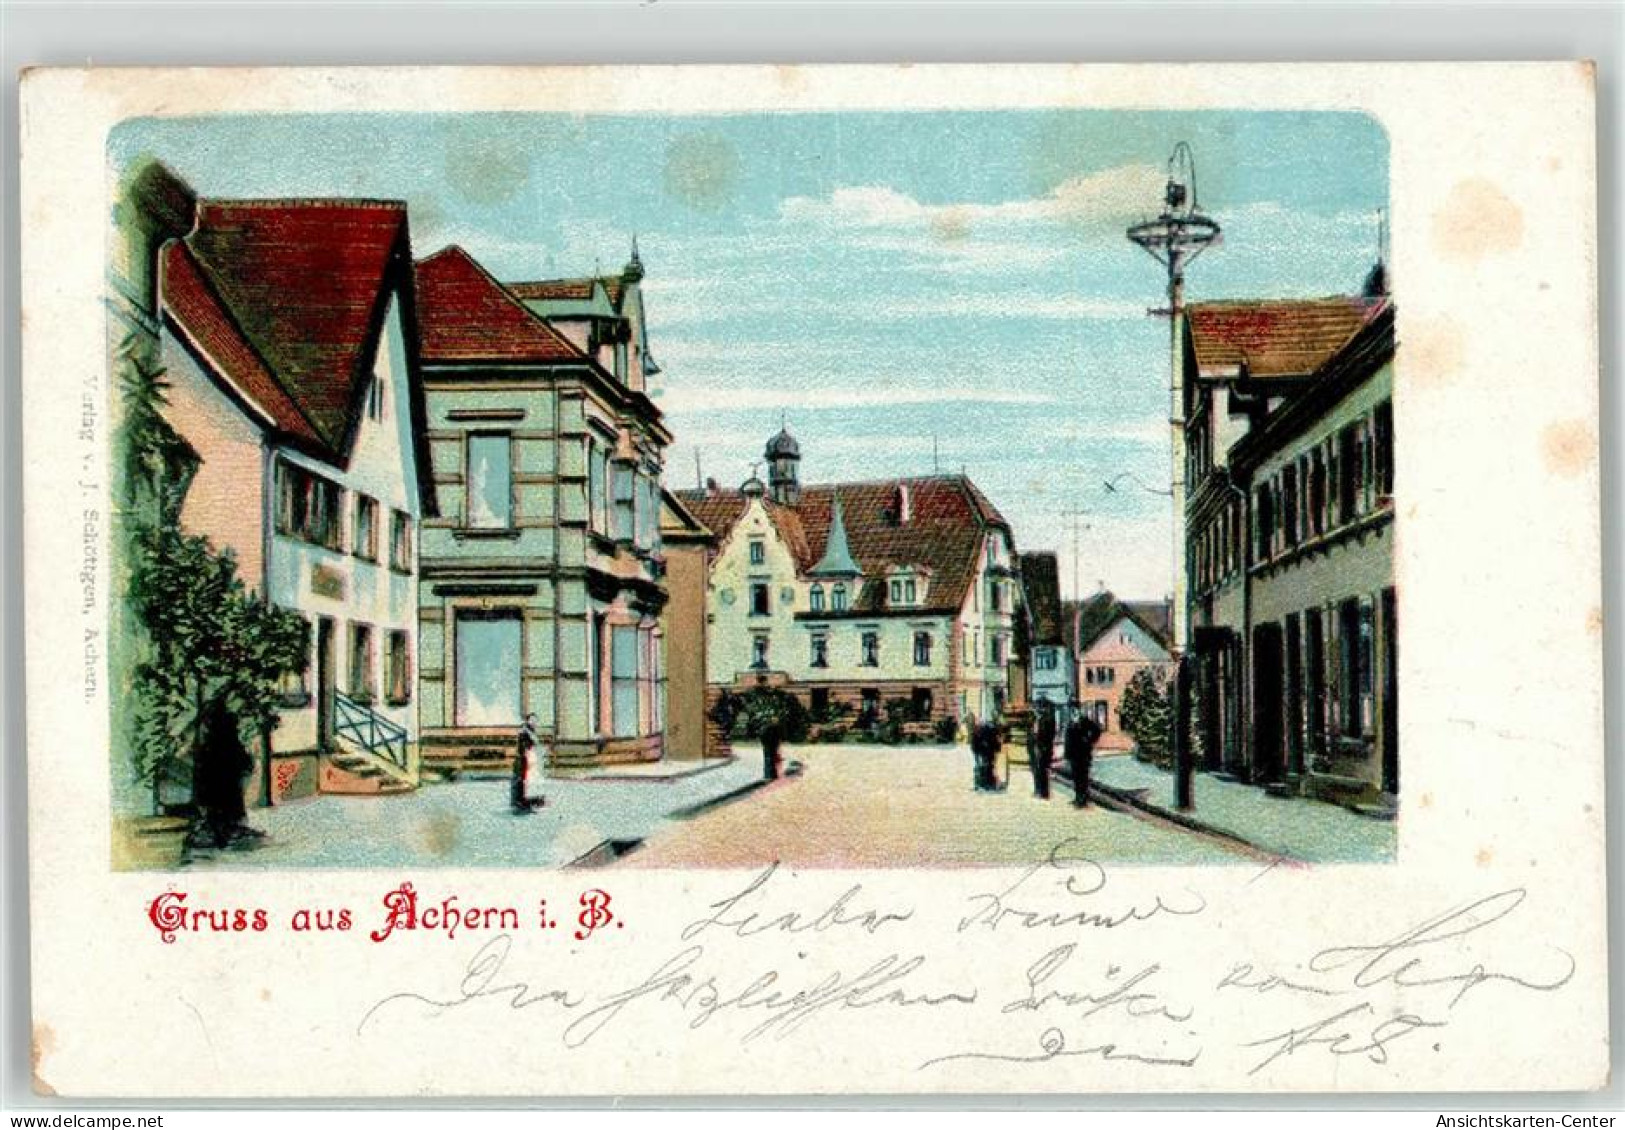 Verlag v. J. Schöttgen, Achern.
Gruss aus Achern i. B.
Lieber
Die herzlichsten Grüße von hier
Dein
Ansichtskarten-Center